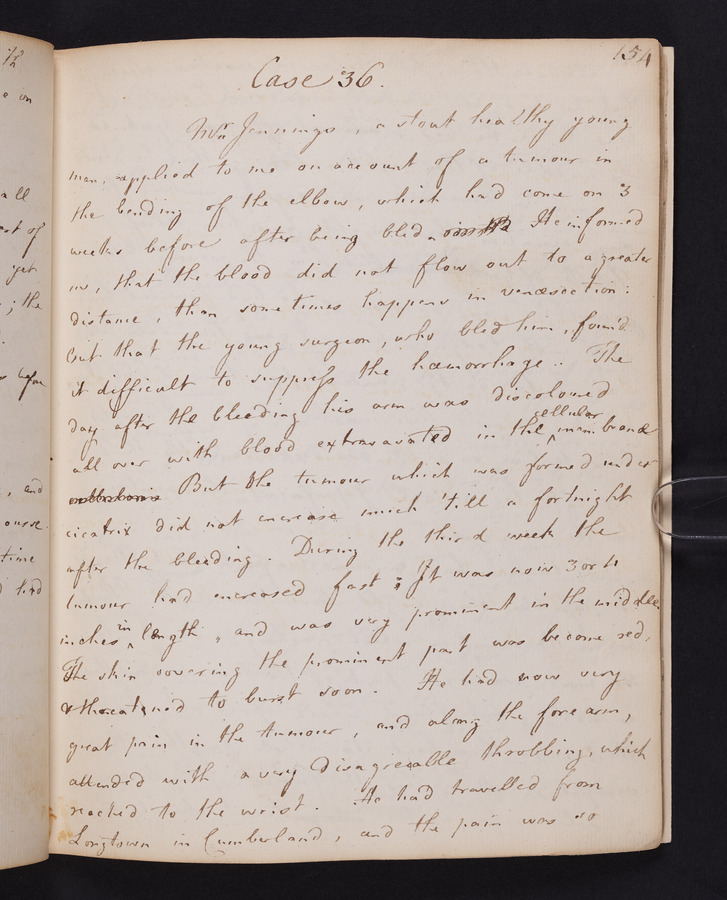 154
Case 36.
Wm Jennings, a stout healthy young
man, applied to me on account of a tumour in
the bending of the elbow, which had come on 3
weeks before after being bled. He informed
us, that the blood did not flow out to a greater
distance, than sometimes happens in venæsection:
but that the young surgeon, who bled him, found
it difficult to suppress the hæmorrhage. The
day after the bleeding his arm was discoloured
all over with blood extravasated in the cellular membrane
But the tumour which was formed under
cicatrix did not encrease much 'till a fortnight
after the bleeding. During the third week the
tumour had encreased fast; It was now 3 or 4
inches in length, and was very prominent in the middle.
The skin covering the prominent part was become red,
& threatened to burst soon. He had now very
great pain in the tumour, and along the fore arm,
attended with a very disagreeable throbbing, which
reached to the wrist. He had travelled from
Longtown in Cumberland, and the pain was so
all
yet
; the
, and
time
had